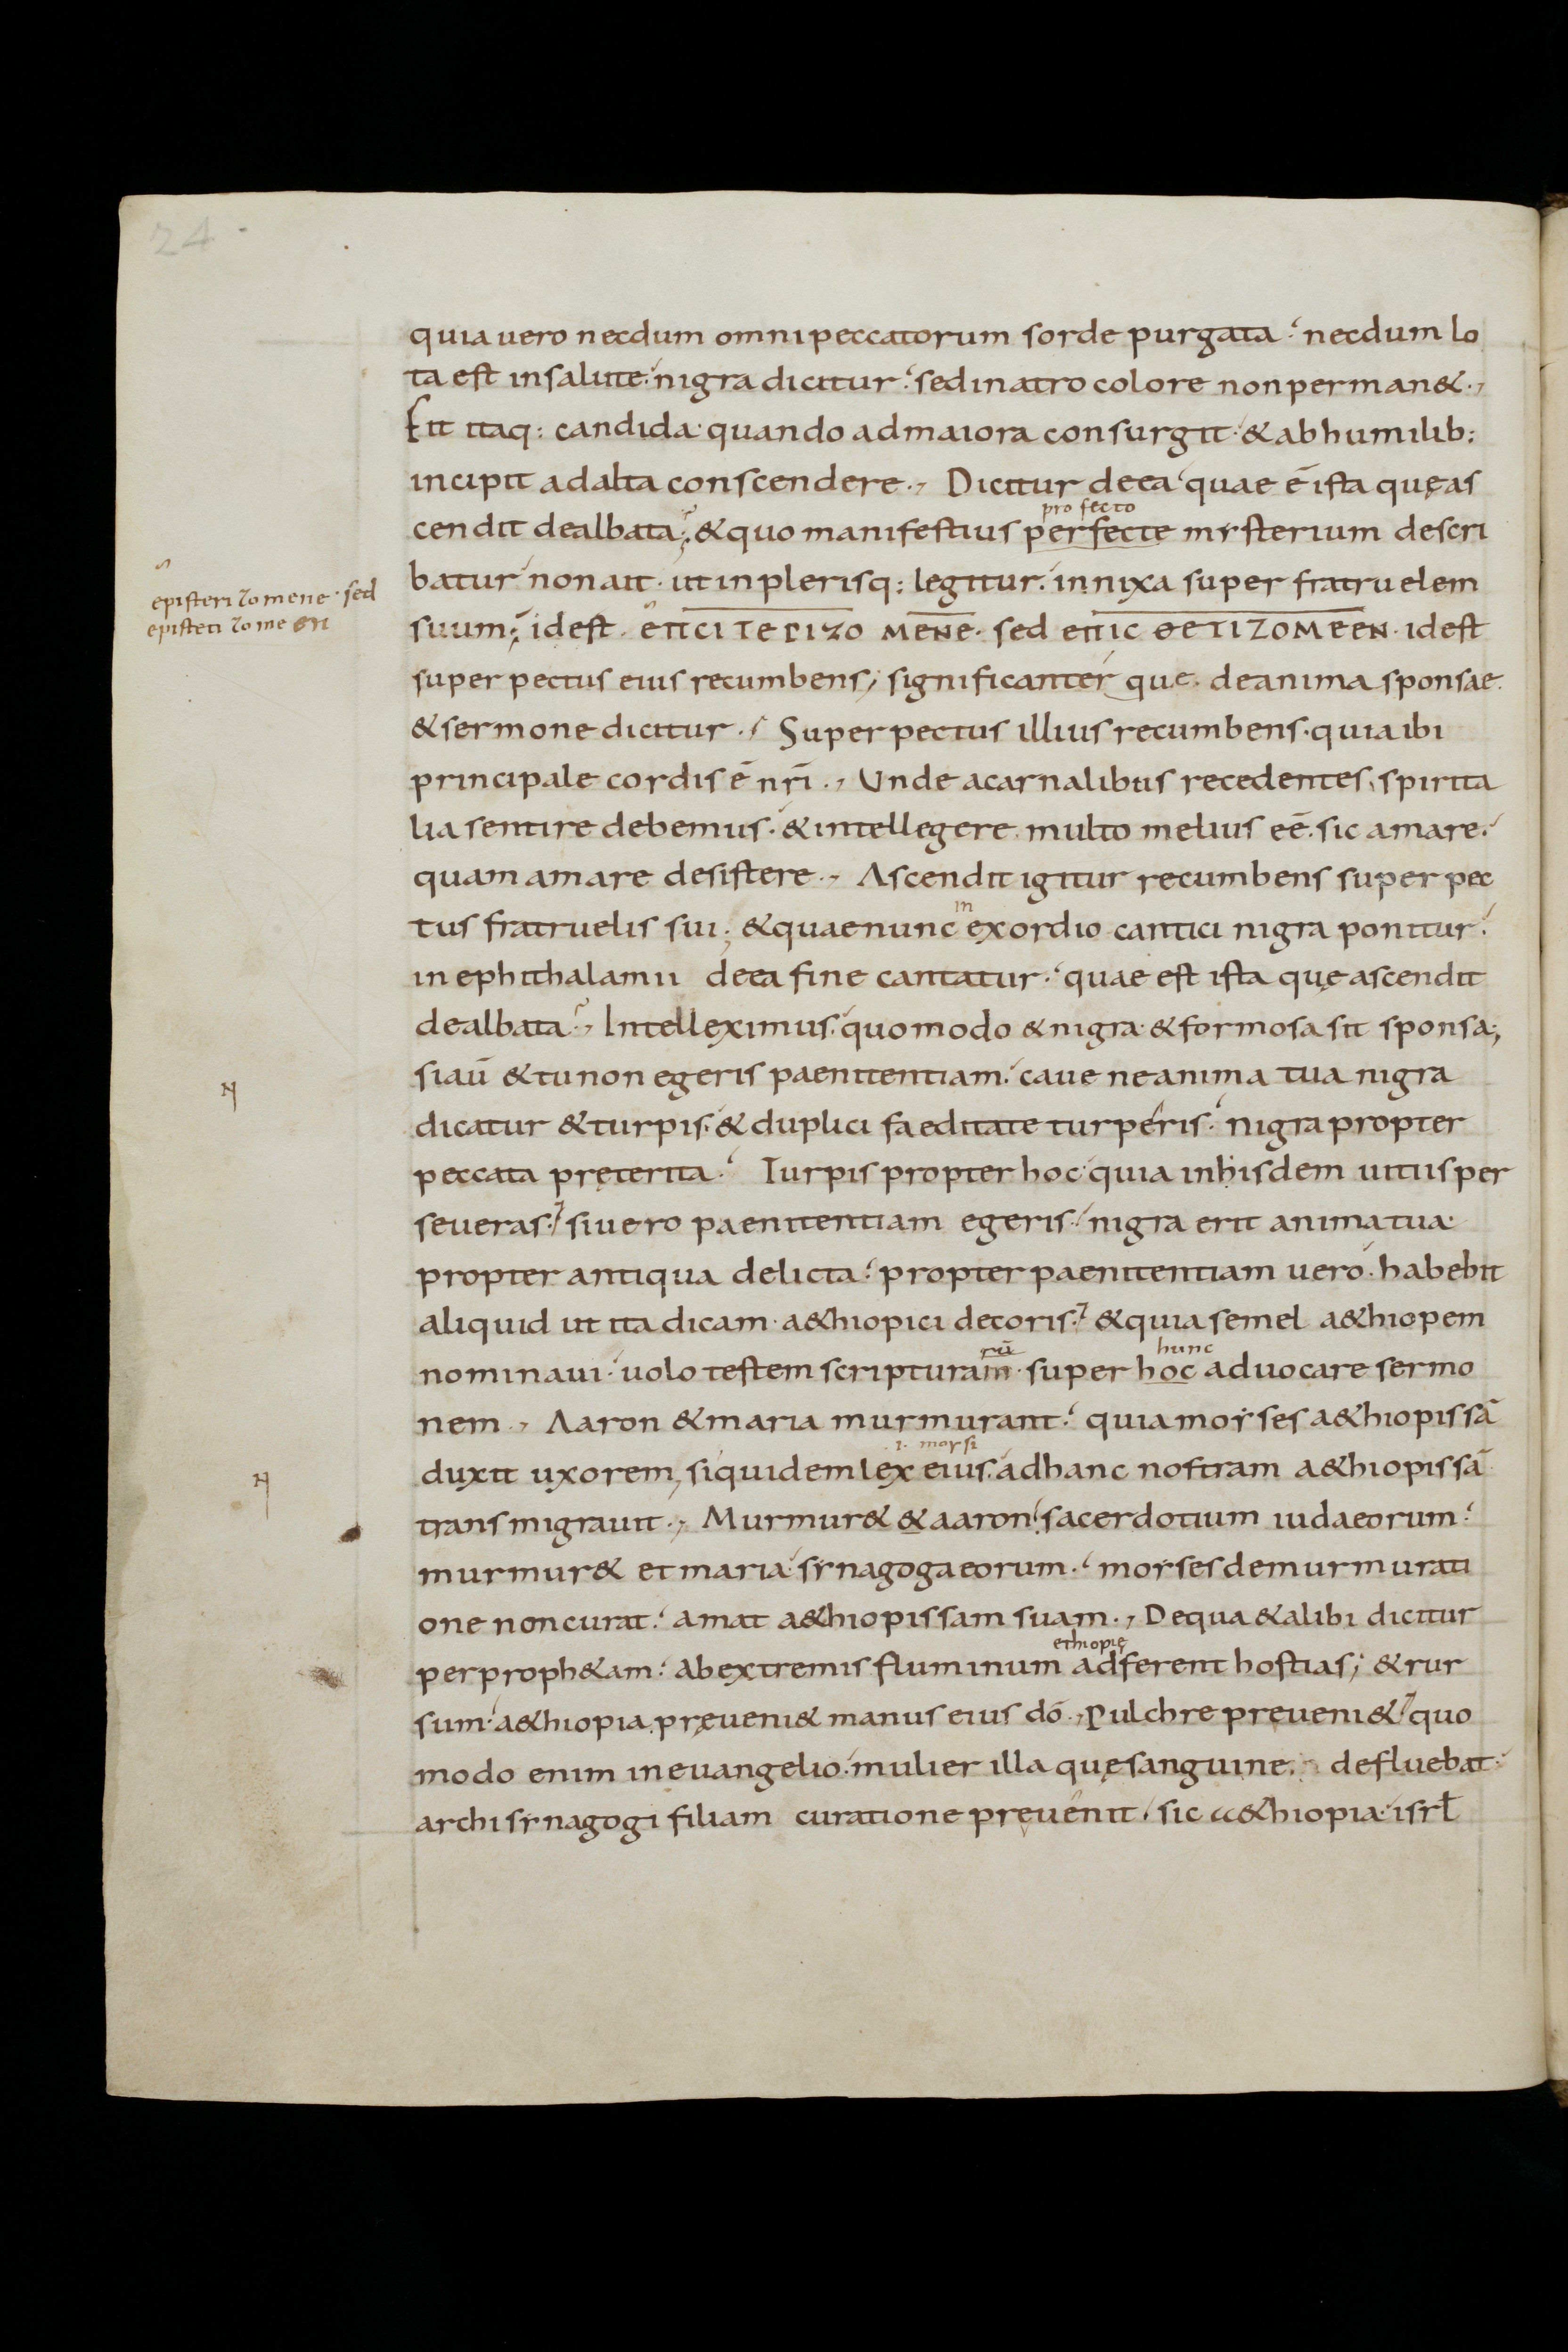 24
quia uero necdum omni peccatorum sorde purgata. necdum lo
ta est in salute. nigra dicitur. sed in atro colore non perman&.,
Fit itaq: candida. quando ad maiora consurgit. & ab humilib:
incipit ad alta conscendere., Dicitur de ea quae ē ista quę as
profecto
cendit dealbata; & quo manifestius perfecte mysterium descri
batur non ait. ut in plerisq: legitur. innixa super fratruelem
episteri zomene. sed
suum; id est. ΕΠCΙ ΤΕΡΙΖΟ ΜΕΝΕ. sed ΕΠΙC ΘΕΤΙΖΟΜΕΕΝ. id est
episteti zome en
super pectus eius recumbens; significanter que. de anima sponsae
& sermone dicitur., Super pectus illius recumbens. quia ibi
principale cordis ē nr̄i., Unde a carnalibus recedentes, spirita
lia sentire debemus. & intellegere multo melius eē. sic amare.
quam amare desistere., Ascendit igitur recumbens super pec
in
tus fratruelis sui; & quae nunc exordio cantici nigra ponitur.
in ephithalamii de ea fine cantatur. quae est ista quę ascendit
dealbata., Intelleximus. quomodo & nigra & formosa sit sponsa;
si aū & tu non egeris paenitentiam. caue ne anima tua nigra
dicatur & turpis. & duplici faeditate turperis. nigra propter
peccata pręterita. Turpis propter hoc quia in hisdem uitiis per
seueras. si uero paenitentiam egeris. nigra erit anima tua
propter antiqua delicta. propter paenitentiam uero. habebit
aliquid ut ita dicam. a&hiopici decoris. & quia semel a&hiopem
rū hunc
nominaui. uolo testem scripturam. super hoc aduocare sermo
nem., Aaron & maria murmurant. quia moyses a&hiopissā
i. moysi
duxit uxorem, siquidem lex eius. ad hanc nostram a&hiopissā
transmigrauit., Murmur& & aaron. sacerdotium iudaeorum.
murmur& et maria. synagoga eorum. moyses de murmurati
one non curat. amat a&hiopissam suam., De qua & alibi dicitur
ethiopię
per proph&am. ab extremis fluminum adferent hostias; & rur
sum. a&hiopia pręueni& manus eius dō., Pulchre preueni& quo
modo enim in euangelio. mulier illa quę sanguine defluebat.
archisynagogi filiam curatione pręuenit. sic a&hiopia. isrł